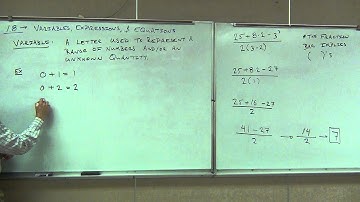 1.8 → VARIABLES, EXPRESSIONS, & EQUATIONS
VARIABLE: A LETTER USED TO REPRESENT A
RANGE OF NUMBERS AND/OR AN
UNKNOWN QUANTITY.
EX
0 + 1 = 1
0 + 2 = 2
25 + 8·2 - 3³
2(3-2)
* THE FRACTION
BAR IMPLIES
( )'S
25 + 8·2 - 27
2(1)
25 + 16 - 27
2
41 - 27
2
→ 14
2
→ 7